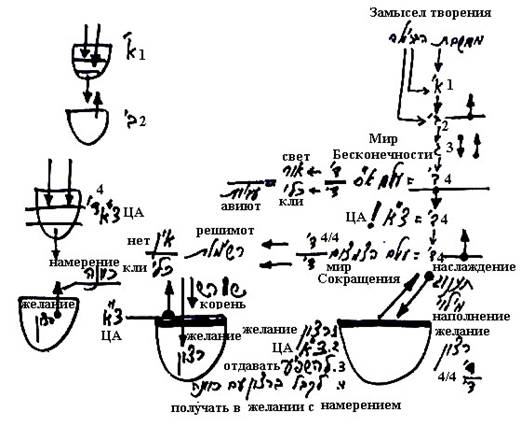 Замысел творения
מחשבת הבריאה
א' 1
א' 1
ב' 2
2
3
Мир
Бесконечности
свет
אור
ד'
ד' 4 = עולם א"ס
כלי
ד'
кли
עביות
авиют
4
ЦА
צא
ЦА
צ"א = ד' 4
решимот
нет
אין
кли
כלי
רשימות
4/4
ד'
ד' 4 = עולם הצמצום
мир
Сокращения
наслаждение
תענוג
מילוי
наполнение
желание
רצון
4/4
ד'
намерение
כוונה
желание
רצון
שורש
корень
צ"א
ЦА
желание
רצון
желание
רצון
ЦА
2. צ"א
отдавать
3. להשפיע
4. לקבל ברצון עם כוונה
получать в желании с намерением